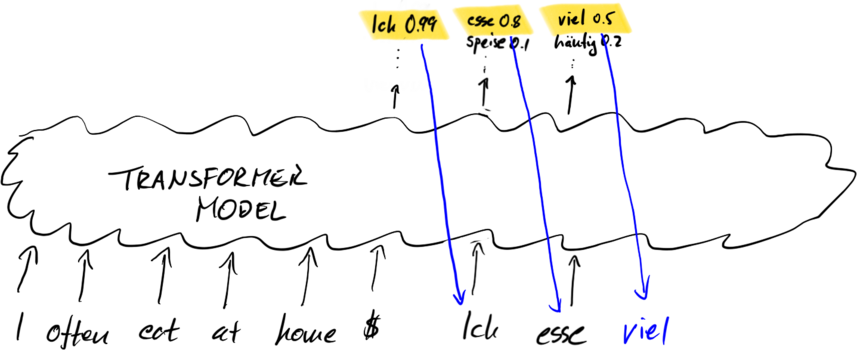 Ich 0.99 esse 0.8 viel 0.5
speise 0.1 häufig 0.2
TRANSFORMER
MODEL
I often eat at home $ Ich esse viel